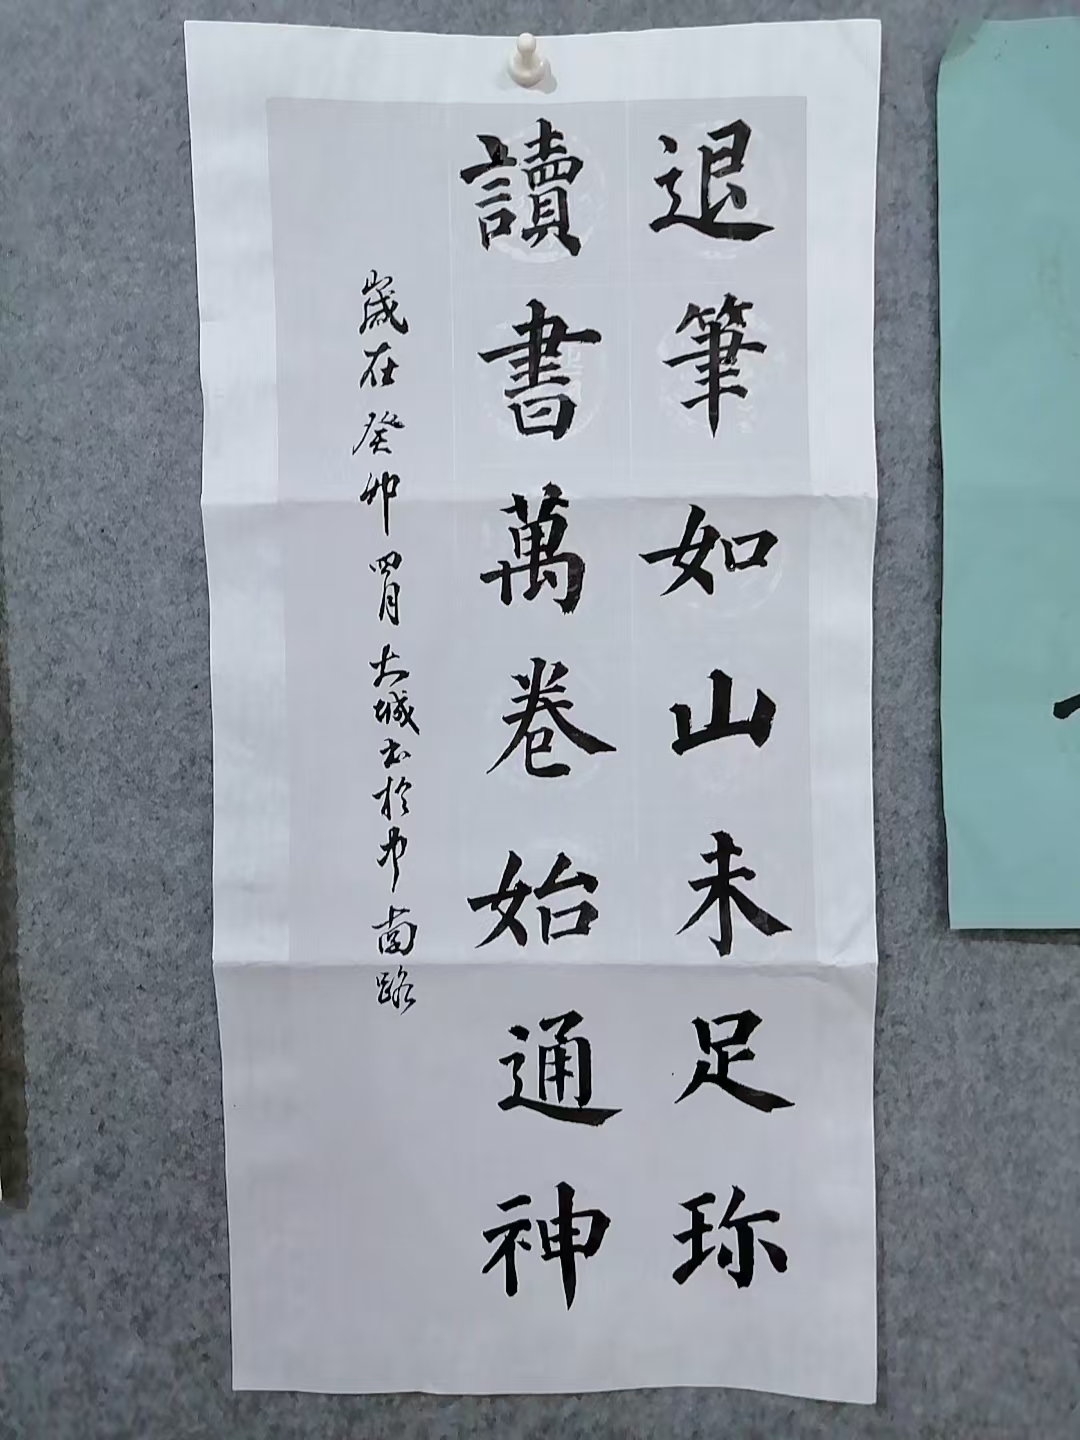 退筆如山未足珎
讀書萬卷始通神
歲在癸卯四月大城书於中南路